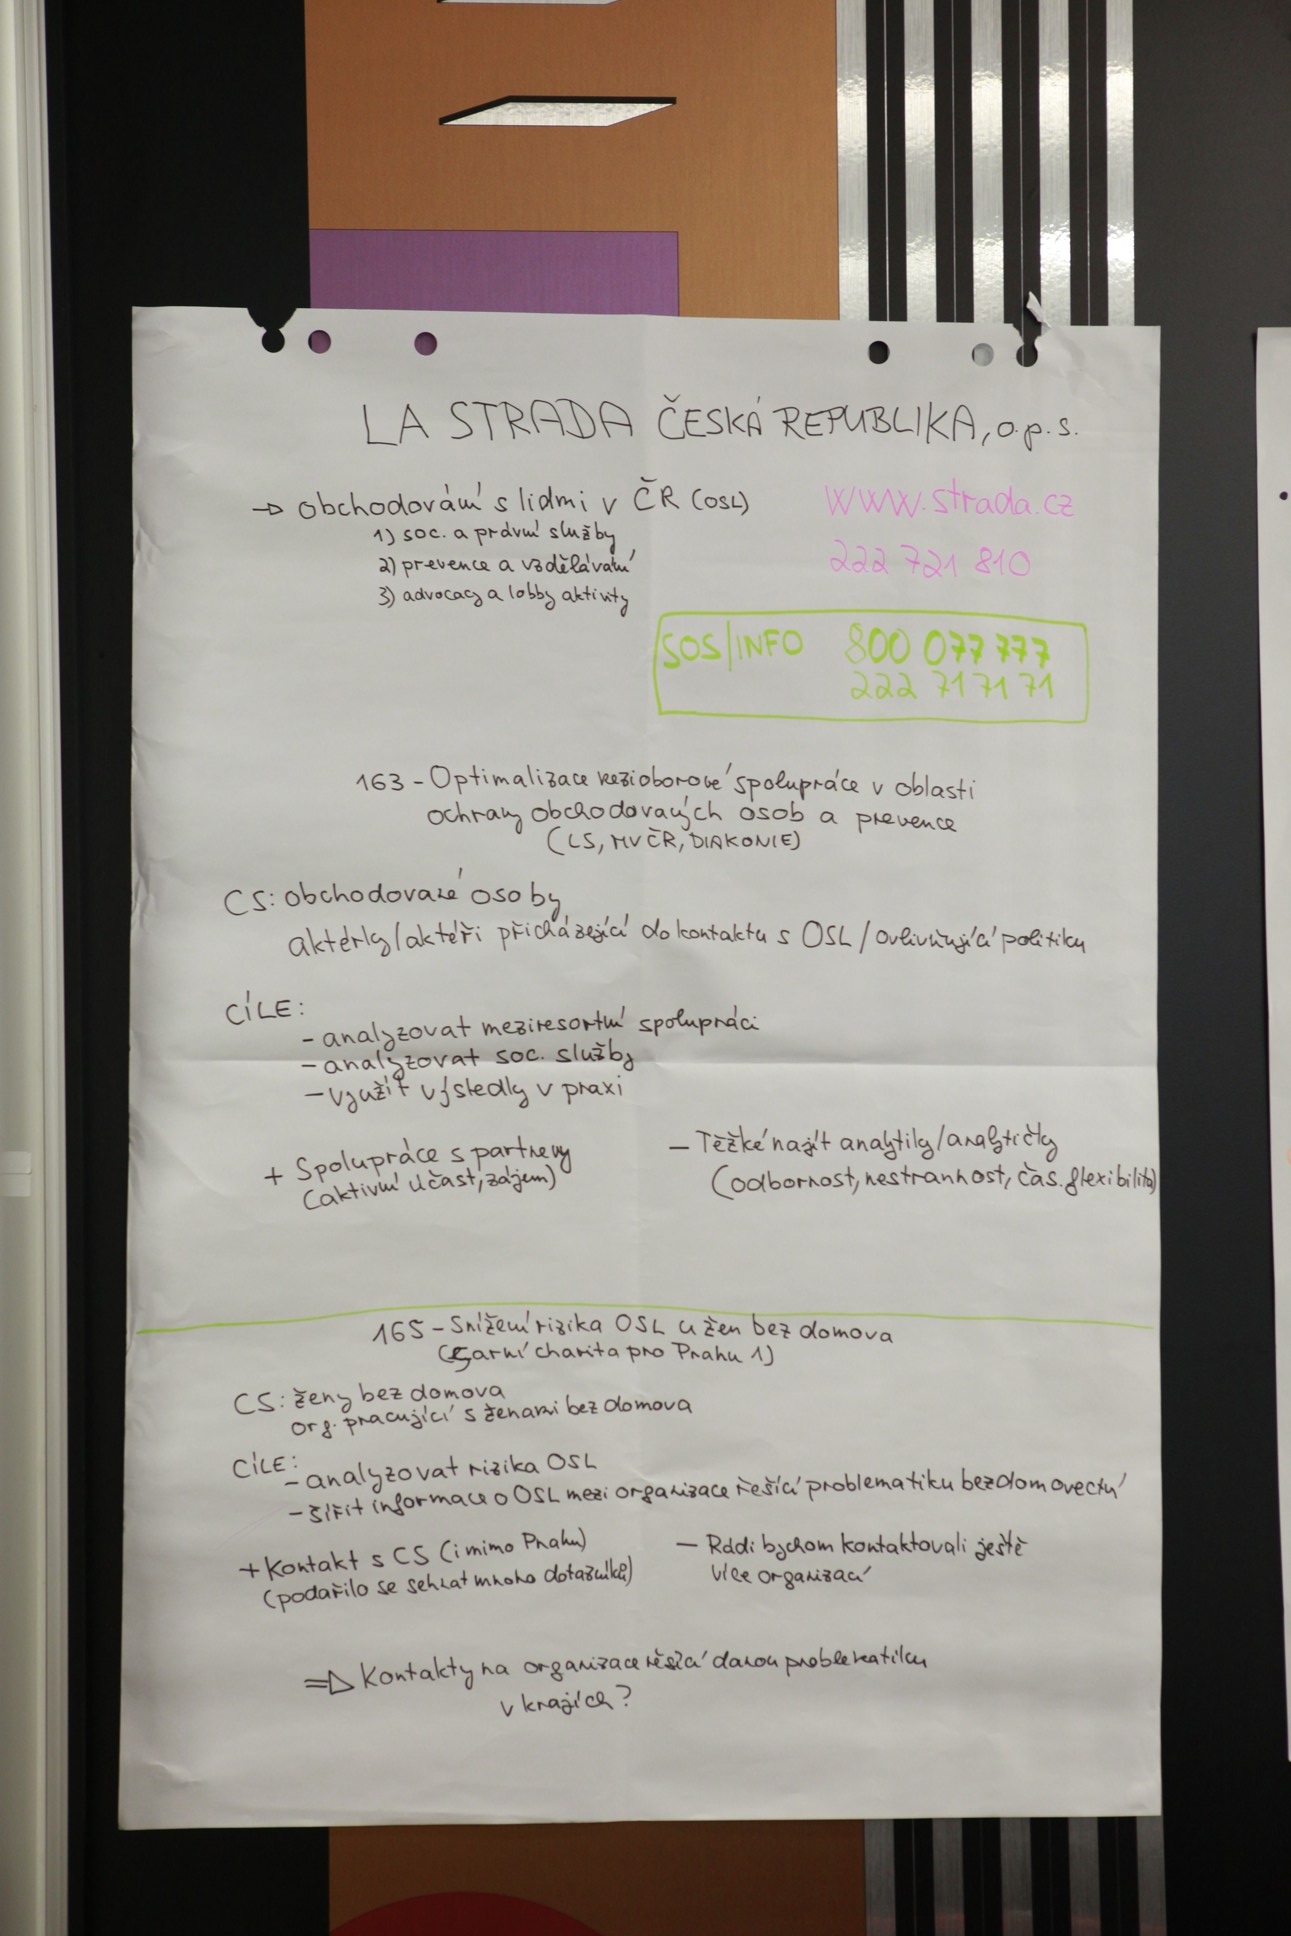 LA STRADA ČESKÁ REPUBLIKA, o.p.s.
→ obchodování s lidmi v ČR (OSL)
1) soc. a právní služby
2) prevence a vzdělávání
3) advocacy a lobby aktivity
www.strada.cz
222 721 810
SOS/INFO 800 077 777
222 71 71 71
163 - Optimalizace mezioborové spolupráce v oblasti
ochrany obchodovaných osob a prevence
(LS, MVČR, DIAKONIE)
CS: obchodované osoby
aktérky/aktéři přicházející do kontaktu s OSL / ovlivňující politiku
CÍLE:
- analyzovat meziresortní spolupráci
- analyzovat soc. služby
- využít výsledky v praxi
+ Spolupráce s partnery
(aktivní účast, zájem)
- Těžké najít analytiky/analytičky
(odbornost, nestrannost, čas. flexibilita)
165 - Snížení rizika OSL u žen bez domova
(Farní charita pro Prahu 1)
CS: ženy bez domova
org. pracující s ženami bez domova
CÍLE:
- analyzovat rizika OSL
- šířit informace o OSL mezi organizace řešící problematiku bezdomovectví
+ Kontakt s CS (i mimo Prahu)
(podařilo se sehnat mnoho dotazníků)
- Rádi bychom kontaktovali ještě
více organizací
⇒ Kontakty na organizace řešící danou problematiku
v krajích?